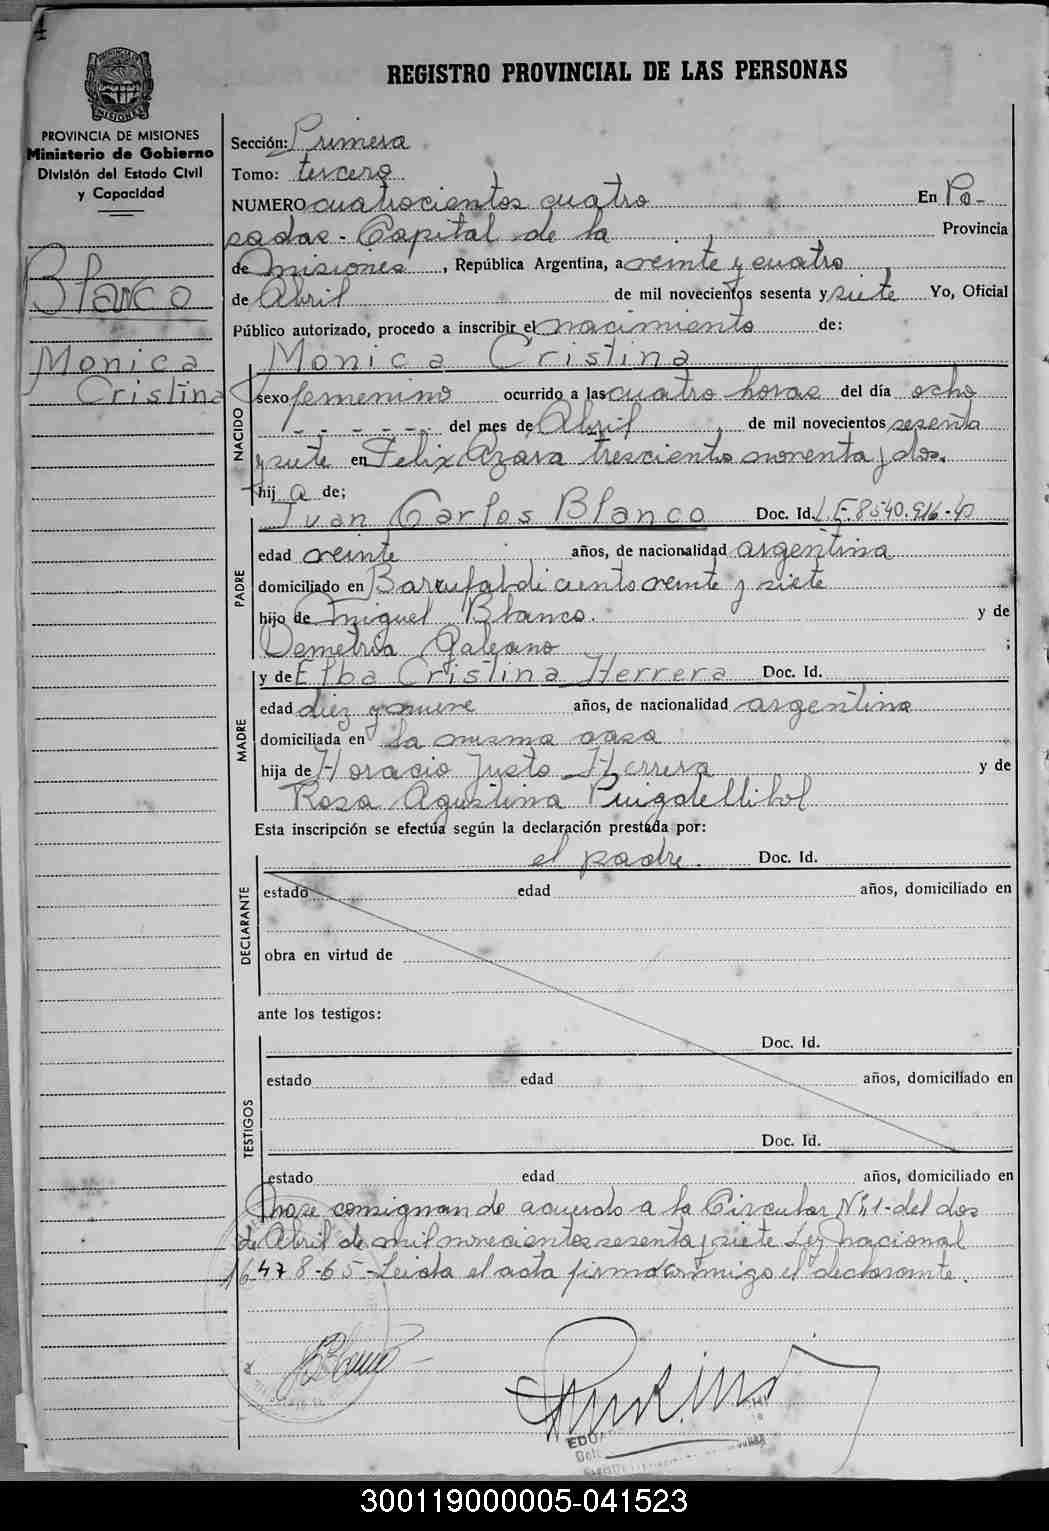 REGISTRO PROVINCIAL DE LAS PERSONAS
PROVINCIA DE MISIONES
Ministerio de Gobierno
División del Estado Civil
y Capacidad
Blanco
Monica
Cristina
Sección: Primera
Tomo: tercero
NUMERO cuatrocientos cuatro En Po-
sadas - Capital de la Provincia
de misiones, República Argentina, a veinte y cuatro
de Abril de mil novecientos sesenta y siete Yo, Oficial
Público autorizado, procedo a inscribir el nacimiento de:
Monica Cristina
NACIDO
sexo femenino ocurrido a las cuatro horas del día ocho
- - - - - - del mes de Abril, de mil novecientos sesenta
y siete en Felix Azara trescientos noventa y dos.
hija de;
Juan Carlos Blanco Doc. Id. L.E. 8540.916-
PADRE
edad veinte años, de nacionalidad argentina
domiciliado en ciento veinte y siete
hijo de miguel Blanco. y de
Demetria Galeano ;
y de Elba Cristina Herrera Doc. Id.
MADRE
edad diez y nueve años, de nacionalidad argentina
domiciliada en la misma casa
hija de Horacio Justo Herrera y de
Rosa Agustina Puigdellibol
Esta inscripción se efectúa según la declaración prestada por:
el padre. Doc. Id.
DECLARANTE
estado edad años, domiciliado en
obra en virtud de
ante los testigos:
Doc. Id.
TESTIGOS
estado edad años, domiciliado en
Doc. Id.
estado edad años, domiciliado en
consignando de acuerdo a la Circular Nº 1 - del dos
de Abril de mil novecientos sesenta y siete Ley nacional
16478-65 - Leida el acta firma conmigo el declarante.
JBlanco
EDUA
300119000005-041523